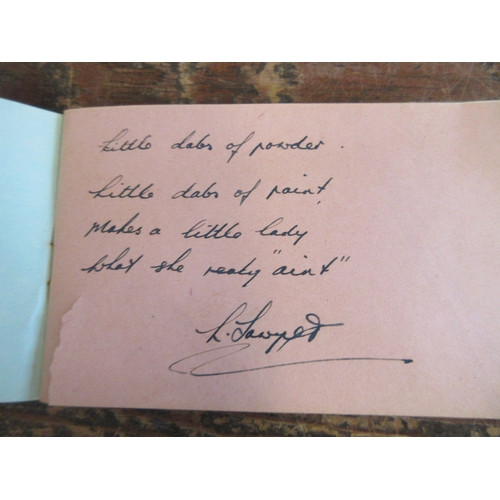 Little dabs of powder.
Little dabs of paint,
makes a little lady
what she realy "ain't"
L.